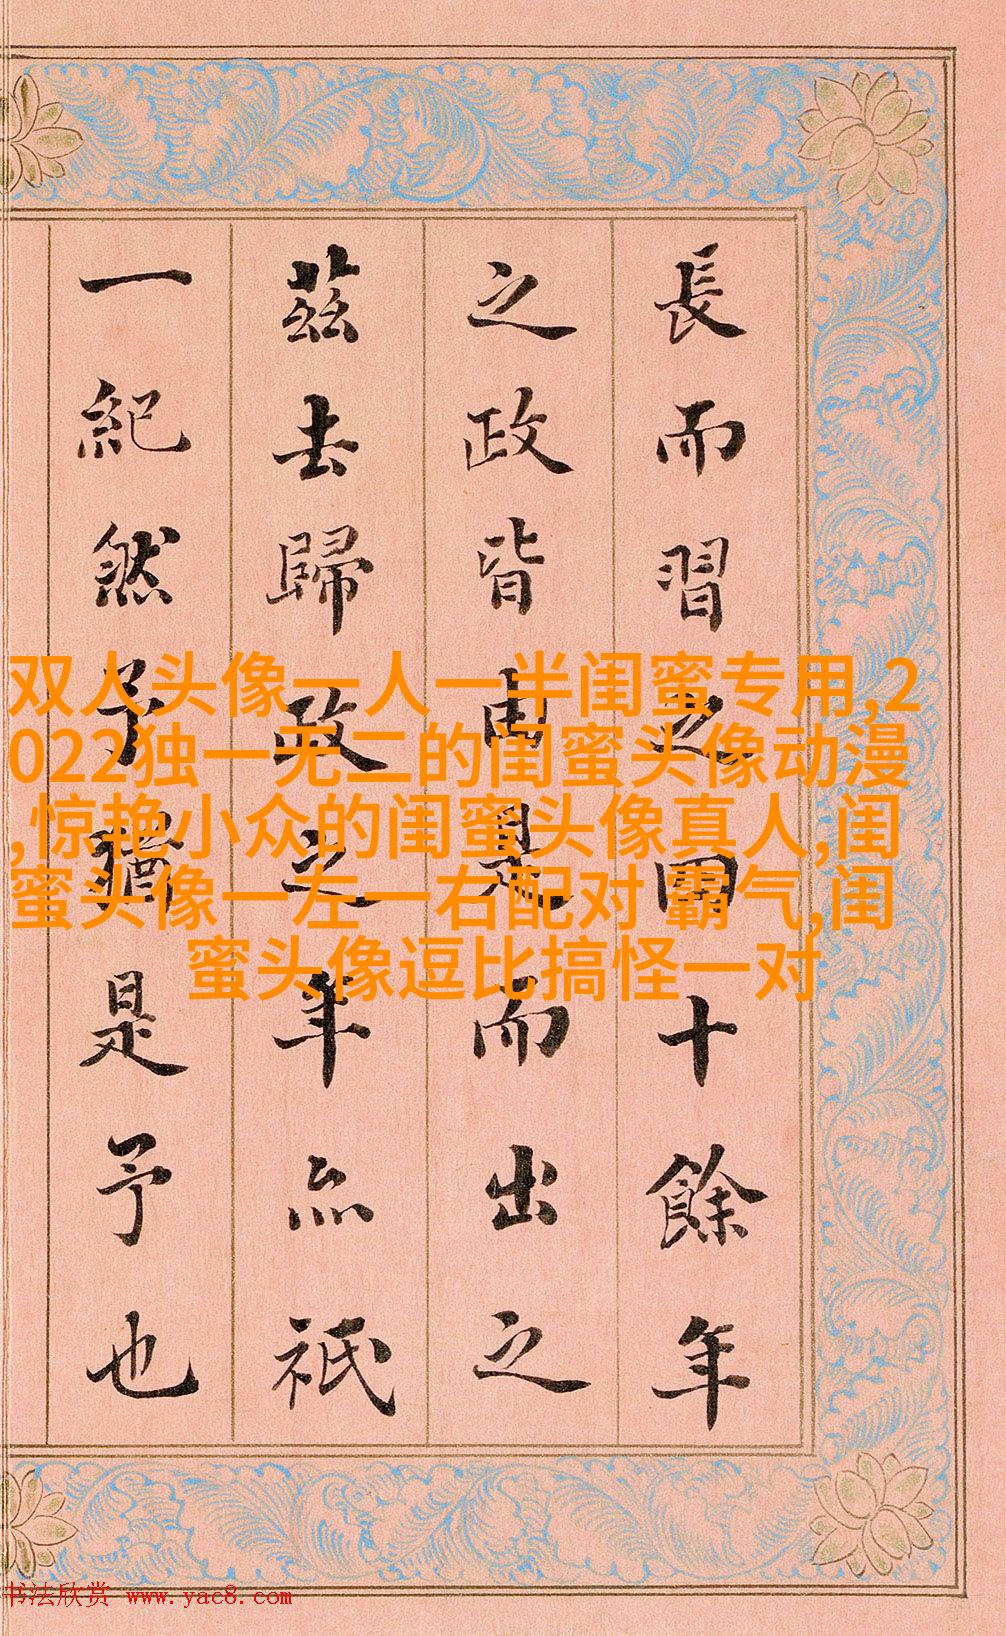 長而習之四十餘年
之政皆由是而出之
茲去歸政之年亦祇
一紀然予猶是予也
双人头像一人一半闺蜜专用,2
022独一无二的闺蜜头像动漫
,惊艳小众的闺蜜头像真人,闺
蜜头像一左一右配对 霸气,闺
蜜头像逗比搞怪一对
书法欣赏 www.yac8.com